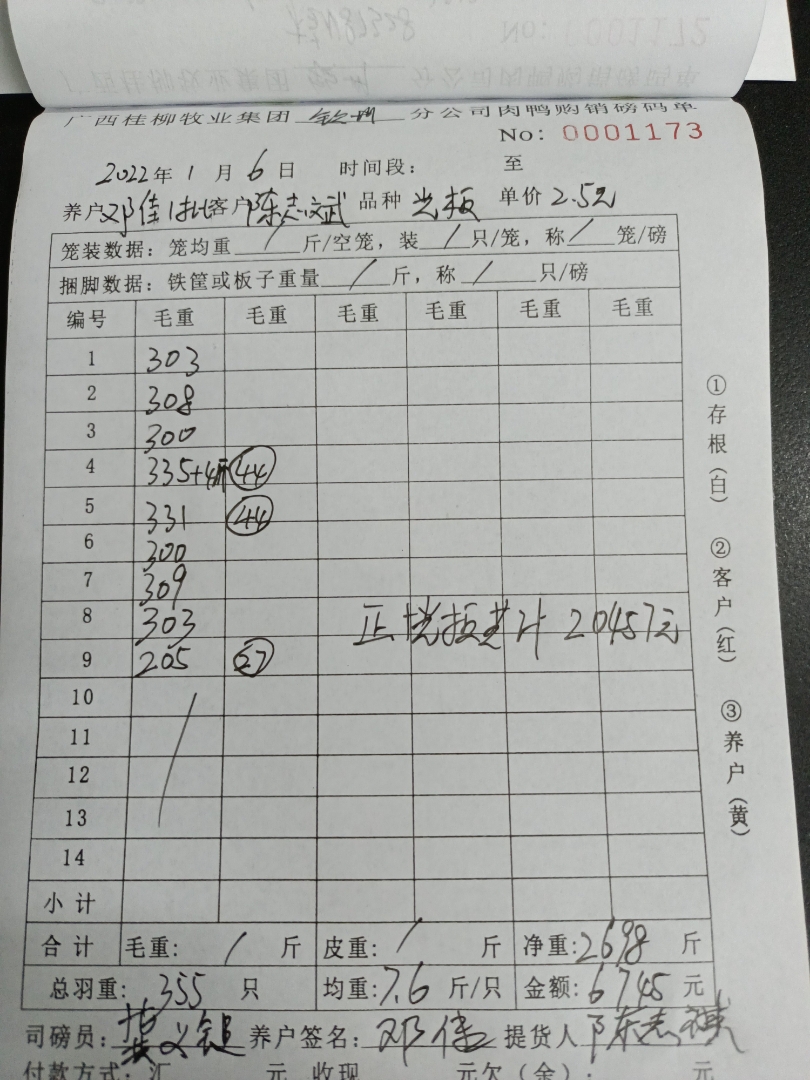 广西桂柳牧业集团 钦州 分公司肉鸭购销磅码单
No: 0001173
2022年 1 月 6 日 时间段: 至
养户 邓佳 客户 陈志斌 品种 光板 单价 2.5元
笼装数据: 笼均重 / 斤/空笼, 装 / 只/笼, 称 / 笼/磅
捆脚数据: 铁筐或板子重量 / 斤, 称 / 只/磅
编号 毛重 毛重 毛重 毛重 毛重 毛重
1 303
2 308
3 300
4 335+4斤 44
5 331 44
6 300
7 309
8 303 正 板共计 20457元
9 205 27
10
11
12
13
14
小计
合计 毛重: / 斤 皮重: / 斤 净重: 2698 斤
总羽重: 355 只 均重: 7.6 斤/只 金额: 6745 元
司磅员: 龚义 养户签名: 邓佳 提货人 陈志
付款方式: 汇 元 收现 元欠(余): 元
①存根(白) ②客户(红) ③养户(黄)